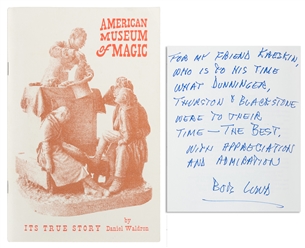 AMERICAN
MUSEUM
of MAGIC
ITS TRUE STORY
by
Daniel Waldron
FOR MY FRIEND KRESKIN,
WHO IS TO HIS TIME
WHAT DUNNINGER,
THURSTON & BLACKSTONE
WERE TO THEIR
TIME — THE BEST.
WITH APPRECIATION
AND ADMIRATION
BOB LUND